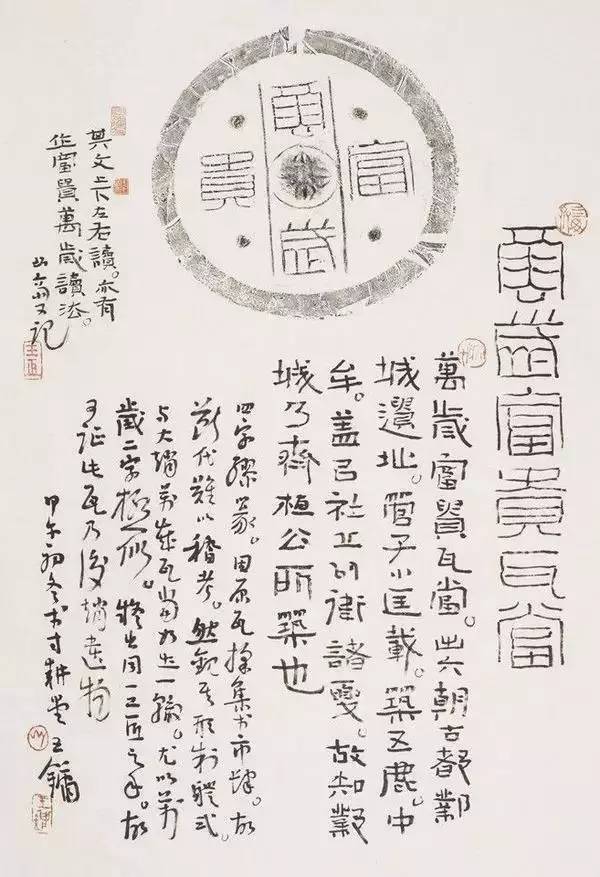 萬歲富貴瓦當
萬歲富貴
萬歲富貴瓦當。此六朝古都鄴
城遺址。管子小匡載。築五鹿。中
牟。蓋与社丘以衛諸夏。故知鄴
城乃齊桓公所築也
四字繆篆。因原瓦採集於市肆。故
斷代難以稽考。然觀其形制體式。
与大趙萬歲瓦當如出一轍。尤以萬
歲二字極似。疑出同一工匠之手。故
可証此瓦乃後趙遺物
甲午初冬於寸耕堂王鏞
其文上下左右讀。亦有
作富貴萬歲讀法。
山翁又記